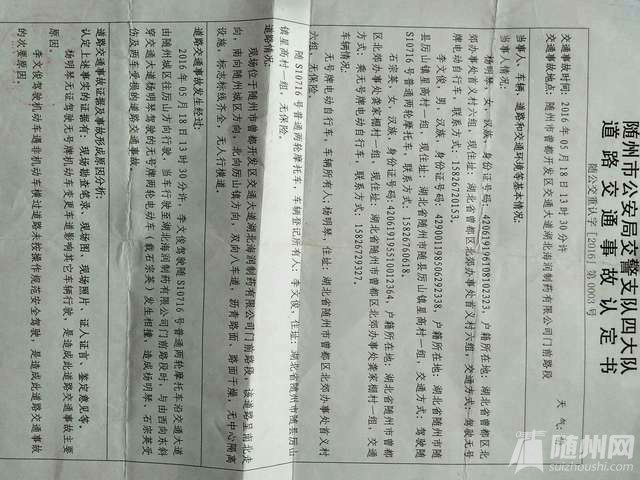 随州市公安局交警支队四大队
道路交通事故认定书
随公交重认字[2016]第0003号
交通事故时间：2016年05月18日13时30分许
天气：
交通事故地点：随州市曾都开发区交通大道湖北海润制药有限公司门前路段
当事人、车辆、道路和交通环境等基本情况：
当事人情况：
杨明琴，女，汉族，身份证号码：
户籍所在地：湖北省随州市曾都区北
郊办事处首义村六组，现住址：湖北省随州市曾都区北郊办事处首义村六组，交通方式：驾驶无号
牌电动自行车，联系方式：15826720153。
李文俊，男，汉族，身份证号码：429001198506292338，户籍所在地：湖北省随州市随
县厉山镇星高村一组，现住址：湖北省随州市随县厉山镇星高村一组，交通方式：驾驶随
S10716号普通两轮摩托车，联系方式：15826760018。
石宗英，女，汉族，身份证号码：
户籍所在地：湖北省随州市曾都
区北郊办事处龚家棚村一组，现住址：湖北省随州市曾都区北郊办事处龚家棚村一组，交通
方式：乘无号牌电动自行车，联系方式：15826729327。
车辆情况：
无号牌电动自行车，车辆所有人：杨明琴，住址：湖北省随州市曾都区北郊办事处首义村
六组，无保险。
随S10716号普通两轮摩托车，车辆登记所有人：李文俊，住址：湖北省随州市随县厉山
镇星高村一组，无保险。
道路情况：
现场位于随州市曾都开发区交通大道湖北海润制药有限公司门前路段，该道路呈南北走
向，南向随州城区方向，北向厉山镇方向，双向八车道，沥青路面，路面干燥，无中心隔离
设施，标志标线齐全，无人行横道。
道路交通事故发生经过：
2016年05月18日13时30分许，李文俊驾驶随S10716号普通两轮摩托车沿交通大道
由随州城区往厉山方向行驶，当车行驶至湖北海润制药有限公司门前路段时，与由西向东斜
穿交通大道杨明琴驾驶的无号牌两轮电动车（载石宗英）发生相撞，造成杨明琴、石宗英受
伤及两车受损的道路交通事故。
道路交通事故证据及事故形成原因分析：
认定上述事实的证据有：现场勘查笔录、现场图、现场照片、证人证言、鉴定意见等。
杨明琴无证驾驶无号牌机动车变更车道影响其它车辆行驶，是造成此道路交通事故主要
原因。
李文俊驾驶机动车遇非机动车横过道路未按操作规范安全驾驶，是造成此道路交通事故
的次要原因。
随州网
suizhoushi.com